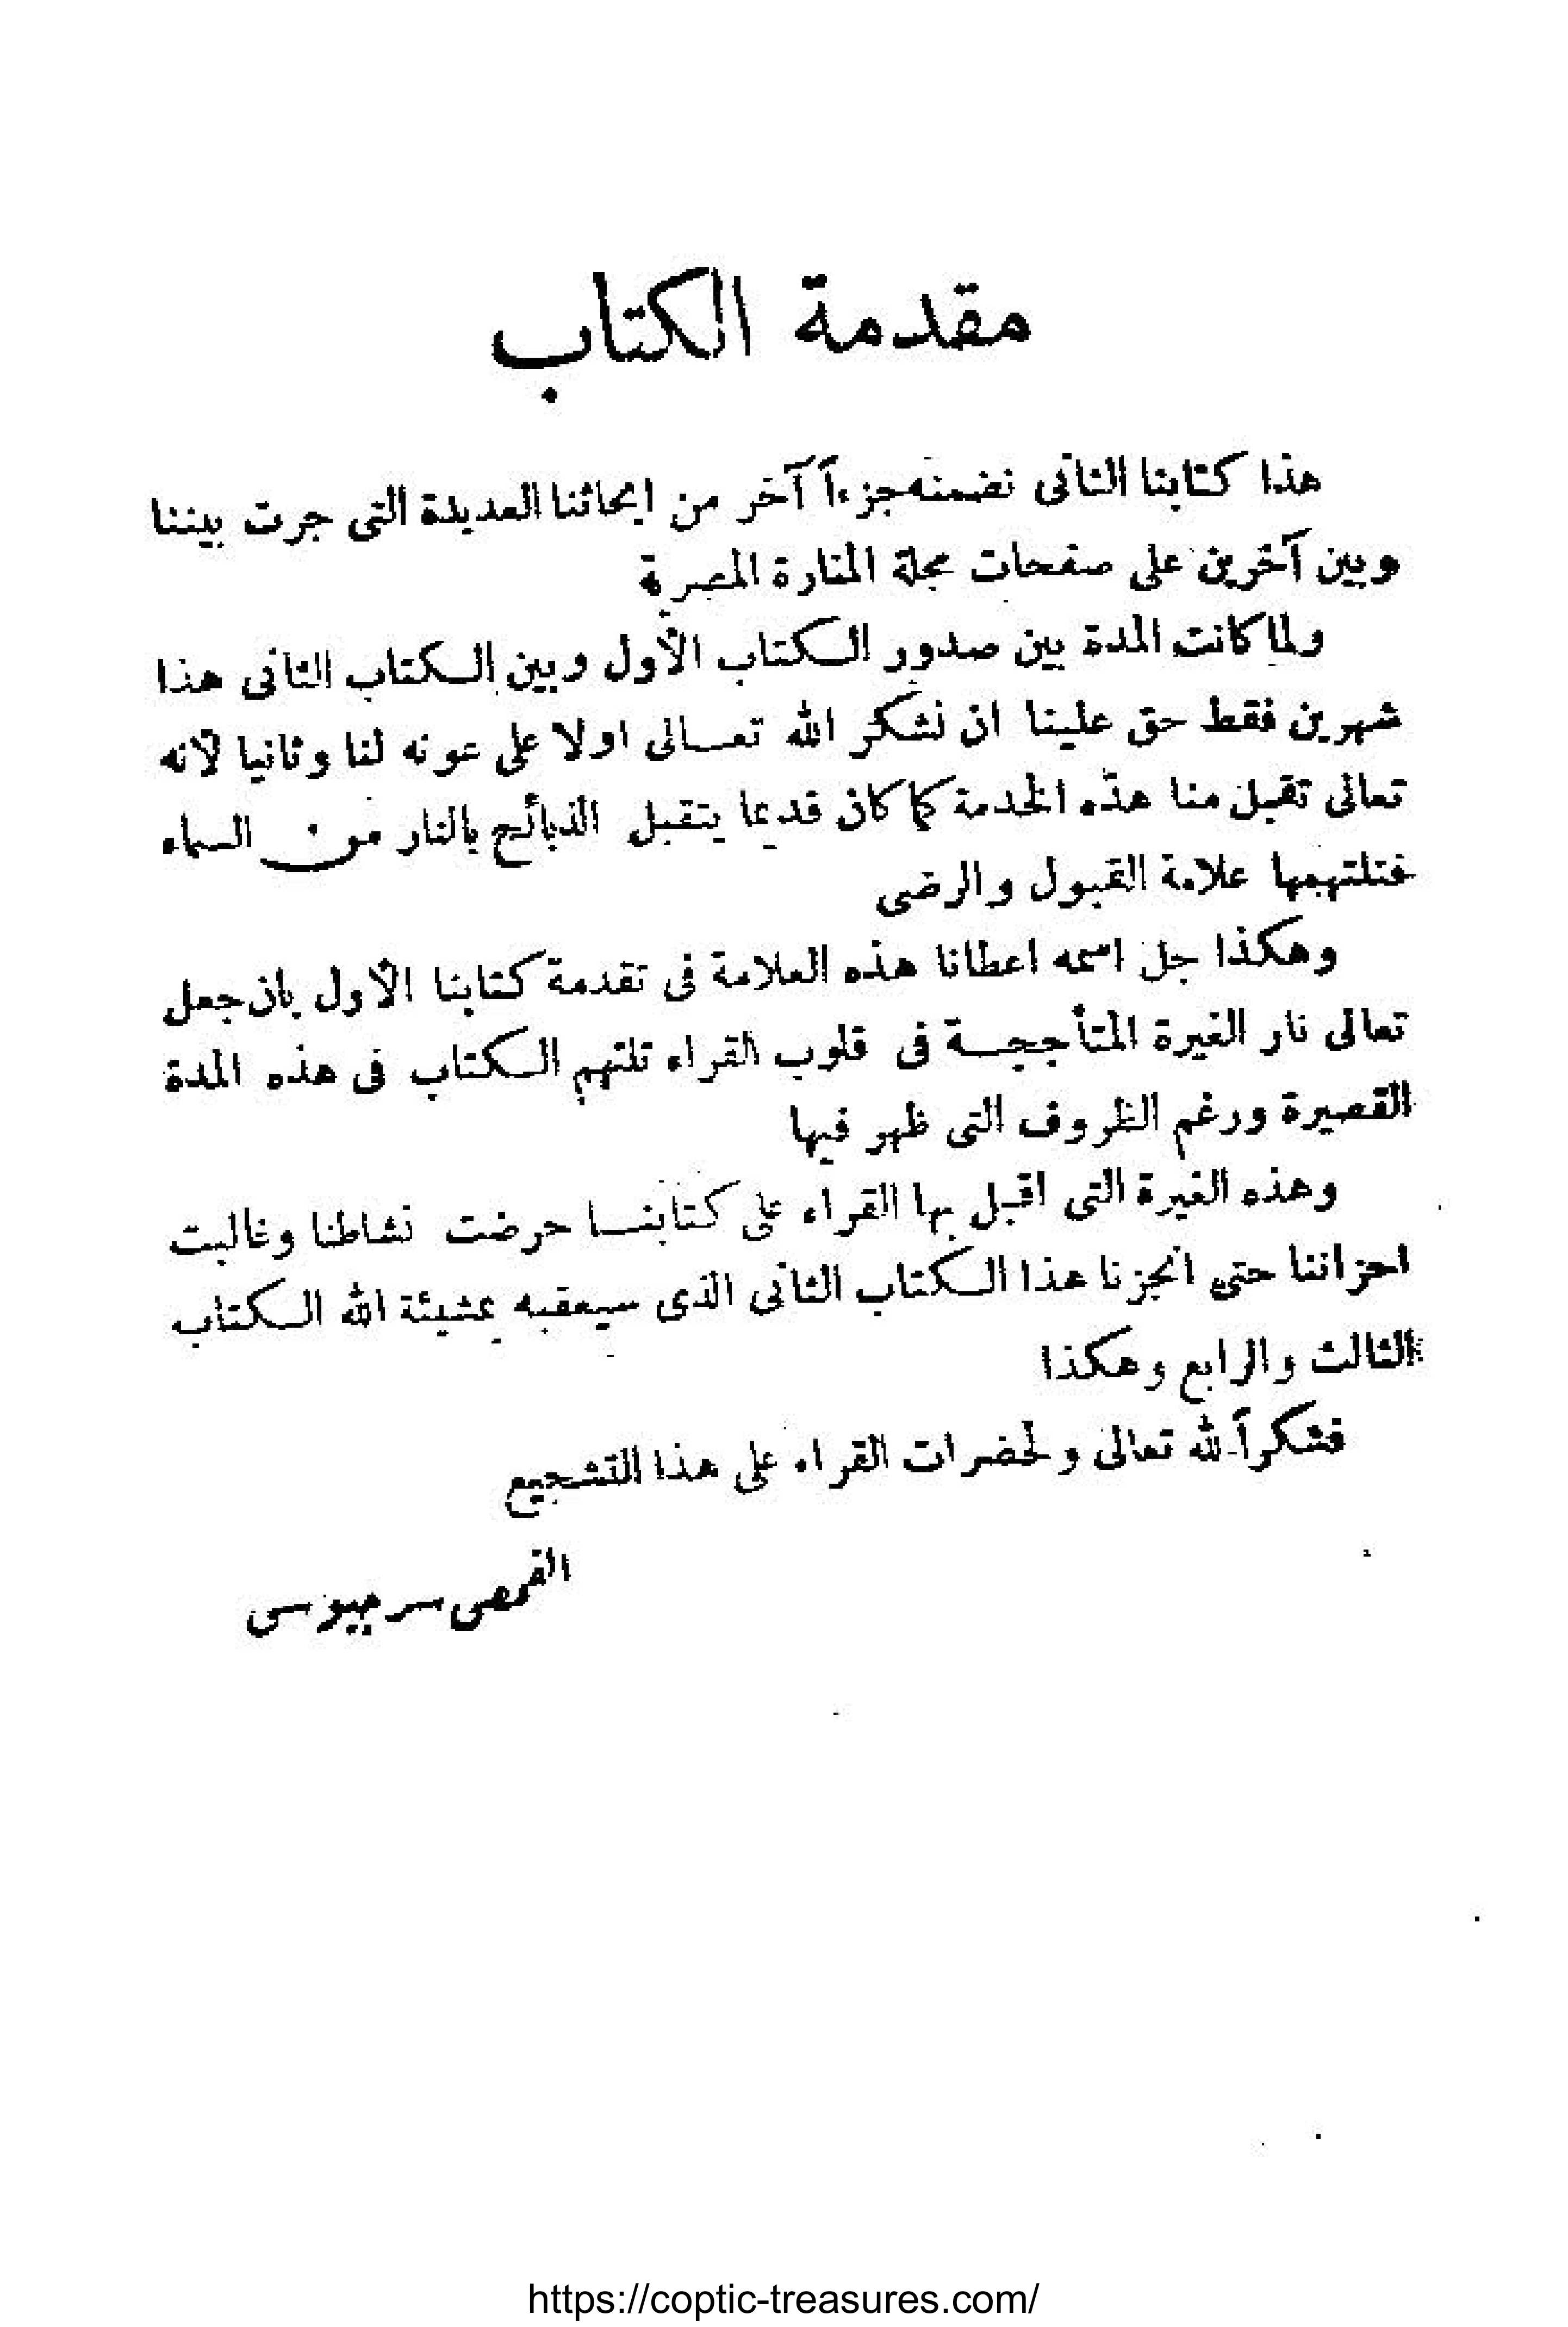 مقدمة الكتاب
هذا كتابنا الثانى نضمنه جزءاً آخر من ابحاثنا العديدة التى جرت بيننا
وبين آخرين على صفحات مجلة المنارة المصرية
ولما كانت المدة بين صدور الكتاب الأول وبين الكتاب الثانى هذا
شهرين فقط حق علينا ان نشكر الله تعالى اولا على عونه لنا وثانيا لأنه
تعالى تقبل منا هذه الخدمة كما كان قديما يتقبل الذبائح بالنار من السماء
فتلتهمها علامة القبول والرضى
وهكذا جل اسمه اعطانا هذه العلامة فى تقدمة كتابنا الأول بان جعل
تعالى نار الغيرة المتأججة فى قلوب القراء تلتهم الكتاب فى هذه المدة
القصيرة ورغم الظروف التى ظهر فيها
وهذه الغيرة التى اقبل بها القراء على كتابنا حرضت نشاطنا وغالبت
احزاننا حتى انجزنا هذا الكتاب الثانى الذى سيعقبه بمشيئة الله الكتاب
الثالث والرابع وهكذا
فشكراً لله تعالى ولحضرات القراء على هذا التشجيع
القمص سرجيوس
https://coptic-treasures.com/